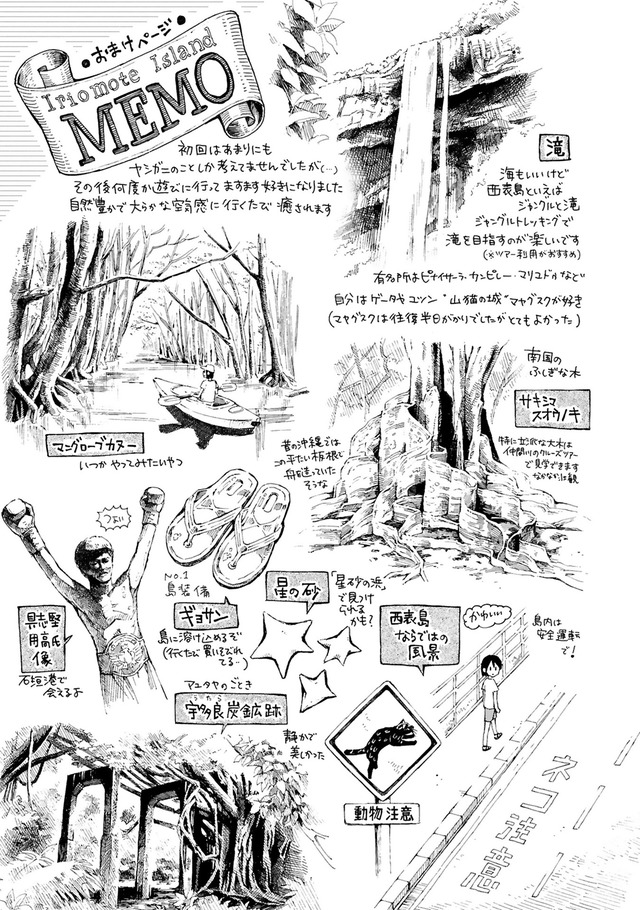 おまけページ
Iriomote Island
MEMO
初回はあまりにも
ヤシガニのことしか考えてませんでしたが(…)
その後何度か遊びに行ってますます好きになりました
自然豊かで大らかな空気感に行くたび癒されます
滝
海もいいけど
西表島といえば
ジャングルと滝
ジャングルトレッキングで
滝を目指すのが楽しいです
(※ツアー利用がおすすめ)
有名所はピナイサーラ・カンピレー・マリユドゥなど
自分はゲータやユツン "山猫の城"マヤグスクが好き
(マヤグスクは往復半日がかりでしたがとてもよかった)
マングローブカヌー
いつかやってみたいやつ
南国の
ふしぎな木
サキシマ
スオウノキ
特に立派な大木は
仲間川のクルーズツアー
で見学できます
なかなかに壮観
昔の沖縄では
この平たい板根で
舟を造っていた
そうな
つよい
具志堅
用高氏
像
石垣港で
会えるよ
No.1
島装備
ギョサン
島に溶け込めるぞ
(行くたび買いそびれ
てる…)
星の砂
「星砂の浜」
で見つけ
られる
かも?
西表島
ならではの
風景
かわいい
島内は
安全運転
で!
アユタヤのごとき
宇多良炭鉱跡
うたら
静かで
美しかった
動物注意
ネコ注意